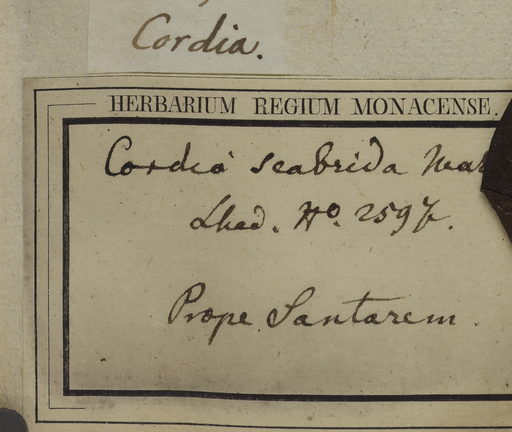 Cordia.
HERBARIUM REGIUM MONACENSE.
Cordia scabrida Mar
Prope Santarem.